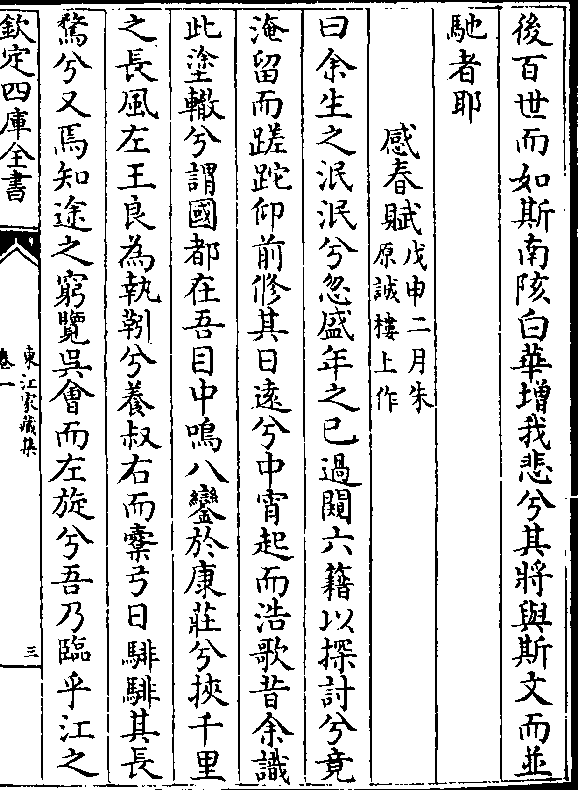 後百世而如斯南陔白華增我悲兮其將與斯文而並
馳者耶
感春賦戊申二月朱
原誠樓上作
曰余生之泯泯兮忽盛年之已過閱六藉以探討兮竟
淹留而蹉跎仰前修其日遠兮中宵起而浩歌昔余識
此塗轍兮謂國都在吾目中鳴八鑾於康莊兮挾千里
之長風左王良為執靷兮養叔右而櫜弓日騑騑其長
騖兮又焉知途之窮覽吳會而左旋兮吾乃臨乎江之
欽定四庫全書
東江家藏集
卷一
三